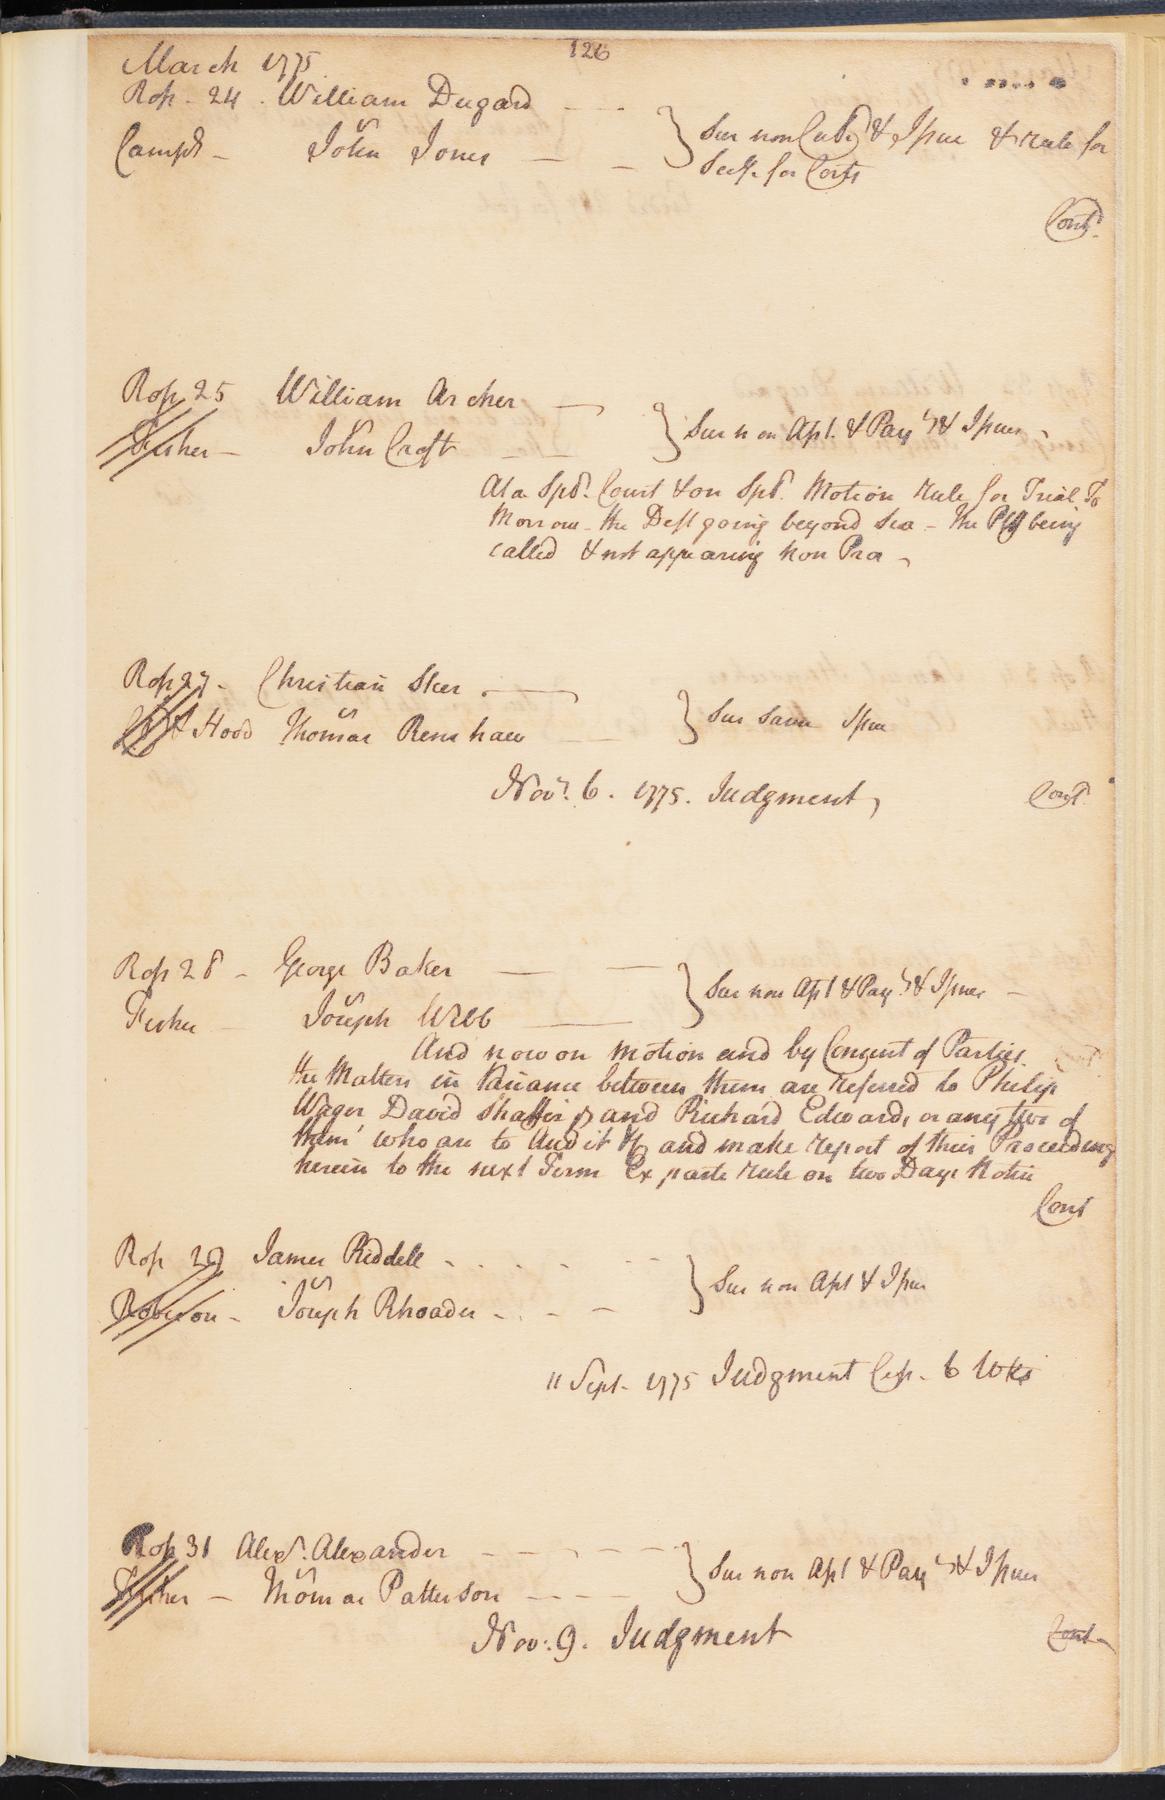 126
March 1775
Rop. 24. William Dugard
Camp. vs John Jones } Sur non Cul & Issue & Rule for
Secy. for Costs
Cont.
Rop 25 William Archer
Fisher vs John Croft } Sur non Apt. & Paymt & Issues
At a Spl. Court & on Spl. Motion Rule for Trial To
Morrow the Deft going beyond Sea - the Plff being
called & not appearing Non Pros
Rop 27. Christian
Hood vs Thomas Renshaw } Sur Same Issue
Novr. 6. 1775. Judgment
Cont.
Rop 28 George Baker
Fisher vs Joseph Webb } Sur non Apt & Paymt & Issues
And now on Motion and by Consent of Parties
the Matters in Variance between them are referred to Philip
Wager David Shaffer and Richard Edwards or any two of
them who are to Audit and make report of their Proceedings
herein to the next Term Ex parte Rule on two Days Notice
Cont
Rop 29 James Riddell
Robeson vs Joseph Rhoades } Sur non Apt & Issue
11 Sept. 1775 Judgment Cess. 6 Wks
Rop 31 Alexr. Alexander
Fisher vs Thomas Patterson } Sur non Apt & Paymt & Issues
Nov. 9. Judgment
Cont